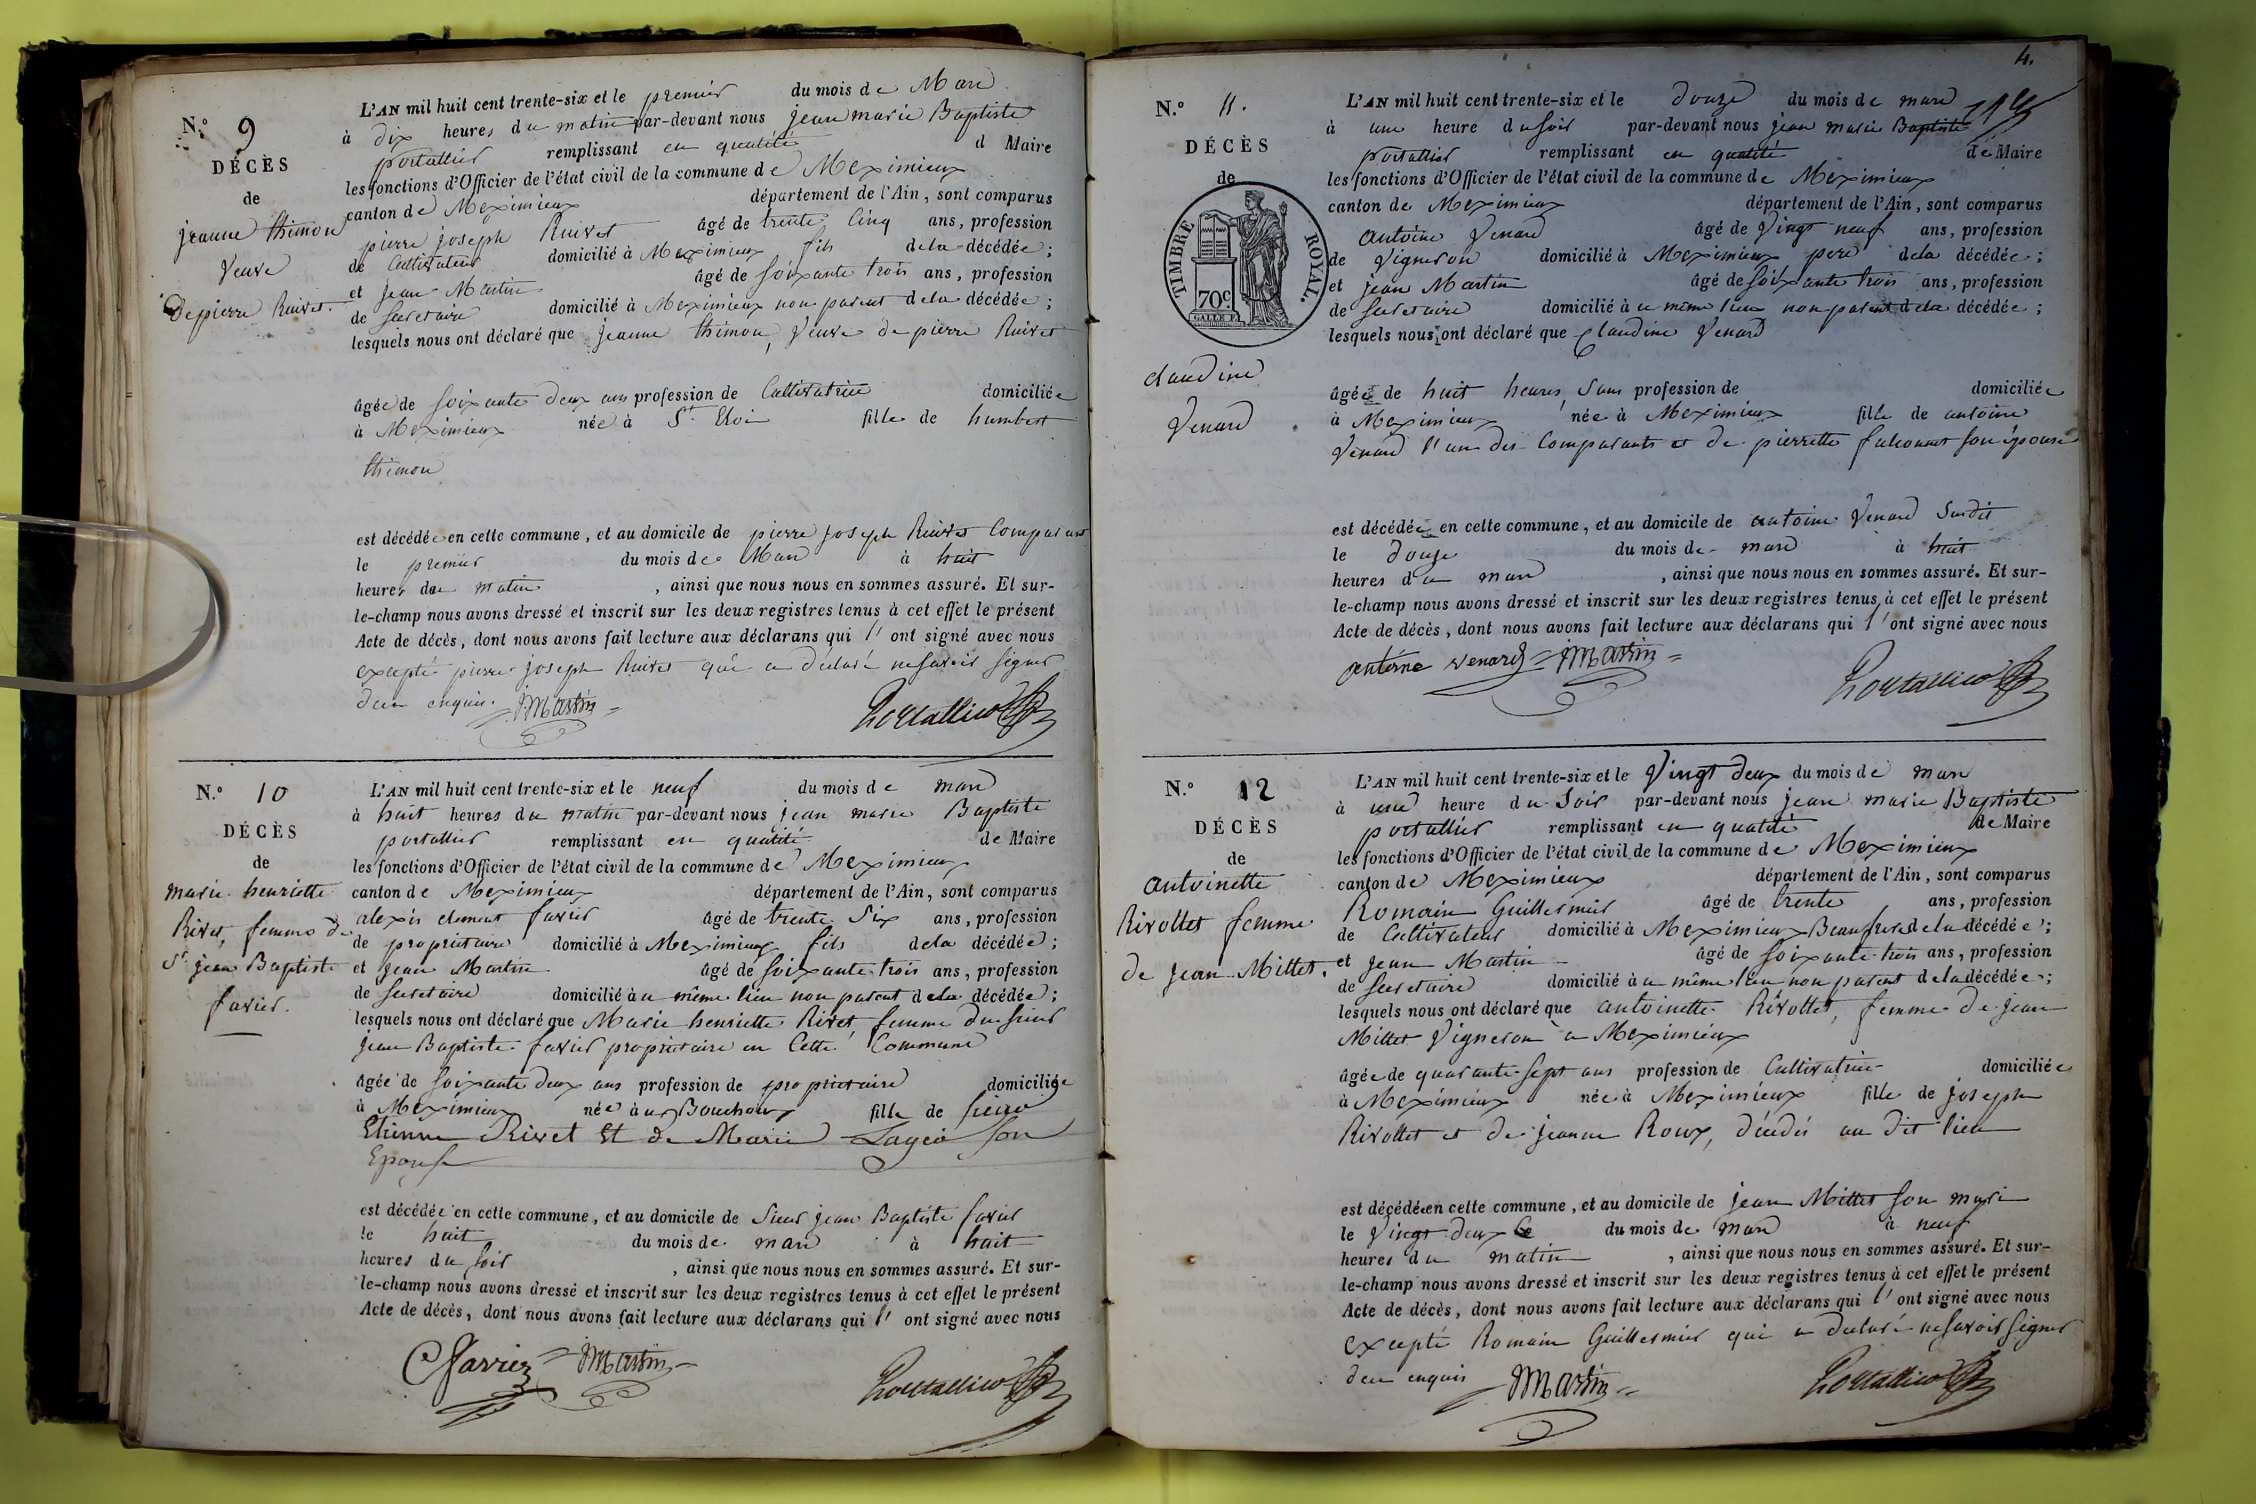 N.º 9
DÉCÈS
de
jeanne thimon
Veuve
de pierre Ruivet.
L'AN mil huit cent trente-six et le premier du mois de Mars
à dix heures du matin par-devant nous jean marie Baptiste
portallier remplissant en qualité d Maire
les fonctions d'Officier de l'état civil de la commune de Meximieux
canton de Meximieux département de l'Ain, sont comparus
pierre joseph Ruivet âgé de trente Cinq ans, profession
de Cultivateur domicilié à Meximieux fils de la décédée;
et jean Martin âgé de soixante trois ans, profession
de secretaire domicilié à Meximieux non parent de la décédée;
lesquels nous ont déclaré que jeanne thimon, Veuve de pierre Ruivet
âgée de soixante deux ans profession de Cultivatrice domiciliée
à Meximieux née à St Eloi fille de humbert
thimon
est décédée en cette commune, et au domicile de pierre joseph Ruivet Comparant
le premier du mois de Mars à huit
heures du matin, ainsi que nous nous en sommes assuré. Et sur-
le-champ nous avons dressé et inscrit sur les deux registres tenus à cet effet le présent
Acte de décès, dont nous avons fait lecture aux déclarans qui l' ont signé avec nous
excepté pierre joseph Ruivet qui a déclaré ne savoir signer
de ce enquis. JMartin Portallier
N.º 10
DÉCÈS
de
marie henriette
Rivet, femme de
Sr jean Baptiste
favier.
L'AN mil huit cent trente-six et le neuf du mois de mars
à huit heures du matin par-devant nous jean marie Baptiste
portallier remplissant en qualité de Maire
les fonctions d'Officier de l'état civil de la commune de Meximieux
canton de Meximieux département de l'Ain, sont comparus
alexis clement favier âgé de trente Six ans, profession
de propriétaire domicilié à Meximieux fils de la décédée;
et jean Martin âgé de soixante trois ans, profession
de secretaire domicilié à u même lieu non parent de la décédée;
lesquels nous ont déclaré que Marie henriette Rivet, femme du sieur
jean Baptiste favier propriétaire en Cette Commune
âgée de soixante deux ans profession de propriétaire domiciliée
à Meximieux née à ux Bouchoux fille de
Etienne Rivet Et de Marie son
Epouse
est décédée en cette commune, et au domicile de Sieur jean Baptiste favier
le huit du mois de mars à huit
heures du soir, ainsi que nous nous en sommes assuré. Et sur-
le-champ nous avons dressé et inscrit sur les deux registres tenus à cet effet le présent
Acte de décès, dont nous avons fait lecture aux déclarans qui l' ont signé avec nous
JMartin Portallier
4.
N.º 11.
DÉCÈS
de
TIMBRE ROYAL.
70c.
claudine
Venard
L'AN mil huit cent trente-six et le douze du mois de mars
à une heure du soir par-devant nous jean marie Baptiste
portallier remplissant en qualité de Maire
les fonctions d'Officier de l'état civil de la commune de Meximieux
canton de Meximieux département de l'Ain, sont comparus
antoine Venard âgé de Vingt neuf ans, profession
de Vigneron domicilié à Meximieux pere de la décédée;
et jean Martin âgé de soixante trois ans, profession
de secretaire domicilié à u même lieu non parent de la décédée;
lesquels nous ont déclaré que Claudine Venard
âgée de huit heures, sans profession de domiciliée
à Meximieux née à Meximieux fille de antoine
Venard l'un des Comparants et de pierrette falconnet son épouse
est décédée en cette commune, et au domicile de antoine Venard Susdit
le douze du mois de mars à huit
heures du mars, ainsi que nous nous en sommes assuré. Et sur-
le-champ nous avons dressé et inscrit sur les deux registres tenus à cet effet le présent
Acte de décès, dont nous avons fait lecture aux déclarans qui l' ont signé avec nous
antoine venard JMartin Portallier
N.º 12
DÉCÈS
de
antoinette
Rivollet femme
de jean Millet.
L'AN mil huit cent trente-six et le Vingt deux du mois de mars
à une heure du Soir par-devant nous jean marie Baptiste
portallier remplissant en qualité de Maire
les fonctions d'Officier de l'état civil de la commune de Meximieux
canton de Meximieux département de l'Ain, sont comparus
Romain Guillermier âgé de trente ans, profession
de Cultivateur domicilié à Meximieux Beaufrere de la décédée;
et jean Martin âgé de soixante trois ans, profession
de secretaire domicilié à u même lieu non parent de la décédée;
lesquels nous ont déclaré que antoinette Rivollet, femme de jean
Millet Vigneron à Meximieux
âgée de quarante sept ans profession de Cultivatrice domiciliée
à Meximieux née à Meximieux fille de joseph
Rivollet et de jeanne Roux, décédés au dit lieu
est décédée en cette commune, et au domicile de jean Millet son mari
le Vingt deux du mois de mars à neuf
heures du matin, ainsi que nous nous en sommes assuré. Et sur-
le-champ nous avons dressé et inscrit sur les deux registres tenus à cet effet le présent
Acte de décès, dont nous avons fait lecture aux déclarans qui l' ont signé avec nous
excepté Romain Guillermier qui a déclaré ne savoir signer
de ce enquis JMartin Portallier